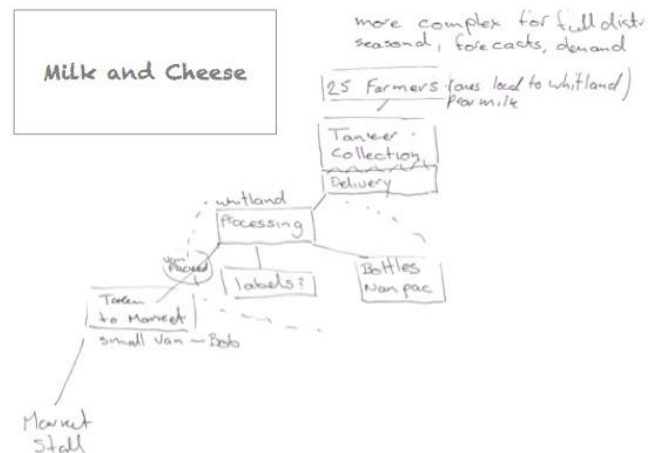 more complex for full distr
seasonal, forecasts, demand
Milk and Cheese
25 Farmers (ones local to whitland)
milk
Tanker
Collection
Delivery
whitland
Processing
Van
Labels?
Bottles
Nampac
Taken
to Market
small van – Bob
Market
Stall